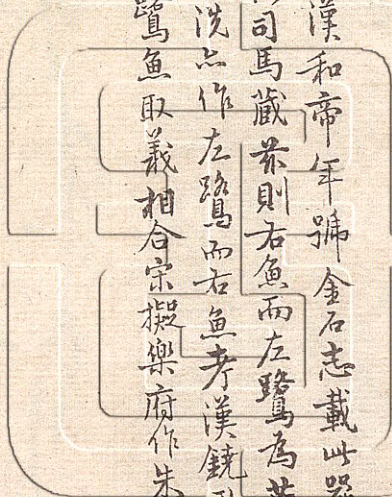 漢和帝年號金石志載此器
司馬藏茲則右魚而左鷺為
洗亦作左鷺而右魚考漢鐃
鷺魚取義相合宋擬樂府作朱